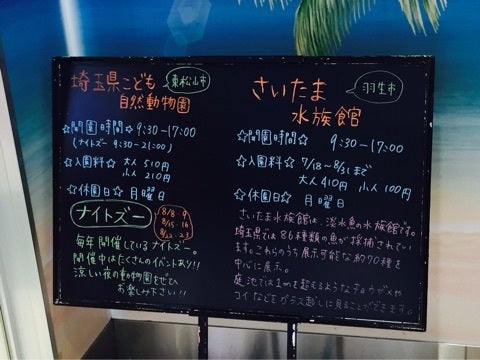 埼玉県こども
東松山市
自然動物園
☆開園時間☆ 9:30-17:00
(ナイトズー 9:30-21:00)
☆入園料☆ 大人 510円
小人 210円
☆休園日☆ 月曜日
ナイトズー
8/8 9
8/15 16
8/22 23
毎年開催しているナイトズー。
開催中はたくさんのイベントあり!!
涼しい夜の動物園をぜひ
お楽しみ下さい!!
さいたま
羽生市
水族館
☆開園時間☆ 9:30-17:00
☆入園料☆ 7/18~8/31まで
大人410円 小人100円
☆休園日☆ 月曜日
さいたま水族館は、淡水魚の水族館です。
埼玉県では86種類の魚が採捕されてい
ます。これらのうち展示可能な約70種を
中心に展示。
庭池では1mを超えるようなチョウザメや
コイなどをガラス越しに見ることができます。